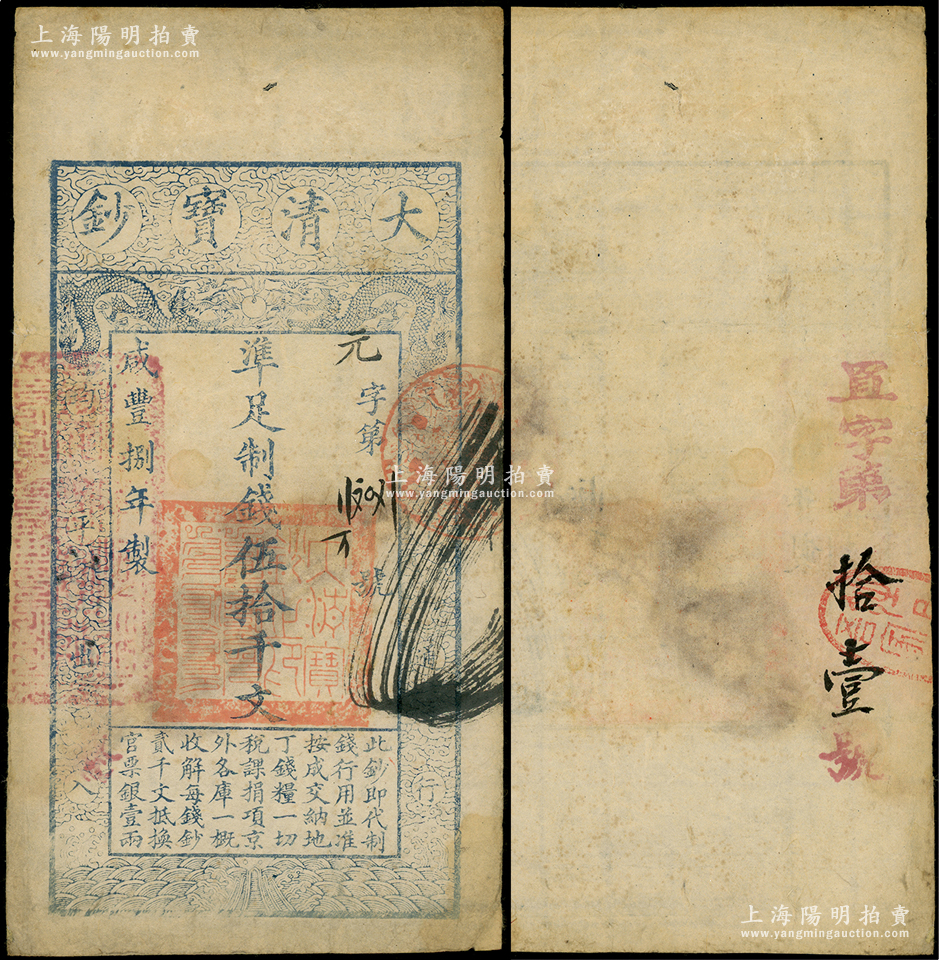 上海陽明拍賣
www.yangmingauction.com
上海陽明拍賣
www.yangmingauction.com
大清寶鈔
元字第
號
準足制錢伍拾千文
咸豐捌年製
此鈔即代制
錢行用並准
按成交納地
丁錢糧一切
稅課捐項京
外各庫一概
收解每錢鈔
貳千文抵換
官票銀壹兩
行
出
入
上海陽明拍賣
www.yangmingauction.com
字第
拾壹
號
上海陽明拍賣
www.yangmingauction.com